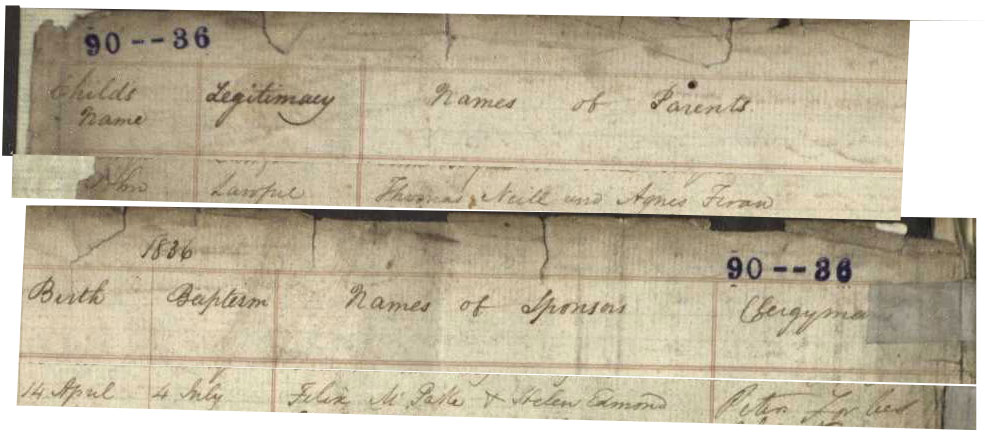 90--36
Childs Legitimacy Names of Parents
Name
John Lawful Thomas Neill and Agnes
1836 90--36
Birth Baptism Names of Sponsors Clergyma
14 April 4 July Felix & Helen Edmond Peter Forbes